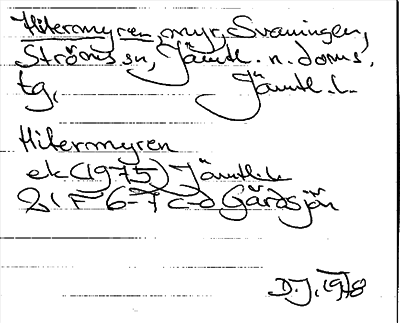 Hitermyren, myr, Svaningen,
Ströms sn, Jämtl. n. doms.
tg, Jämtl. l.
Hitermyren
ek (1975) Jämtl. l
21 F 6-7 c-d Gårdsjön
D.J. 1978